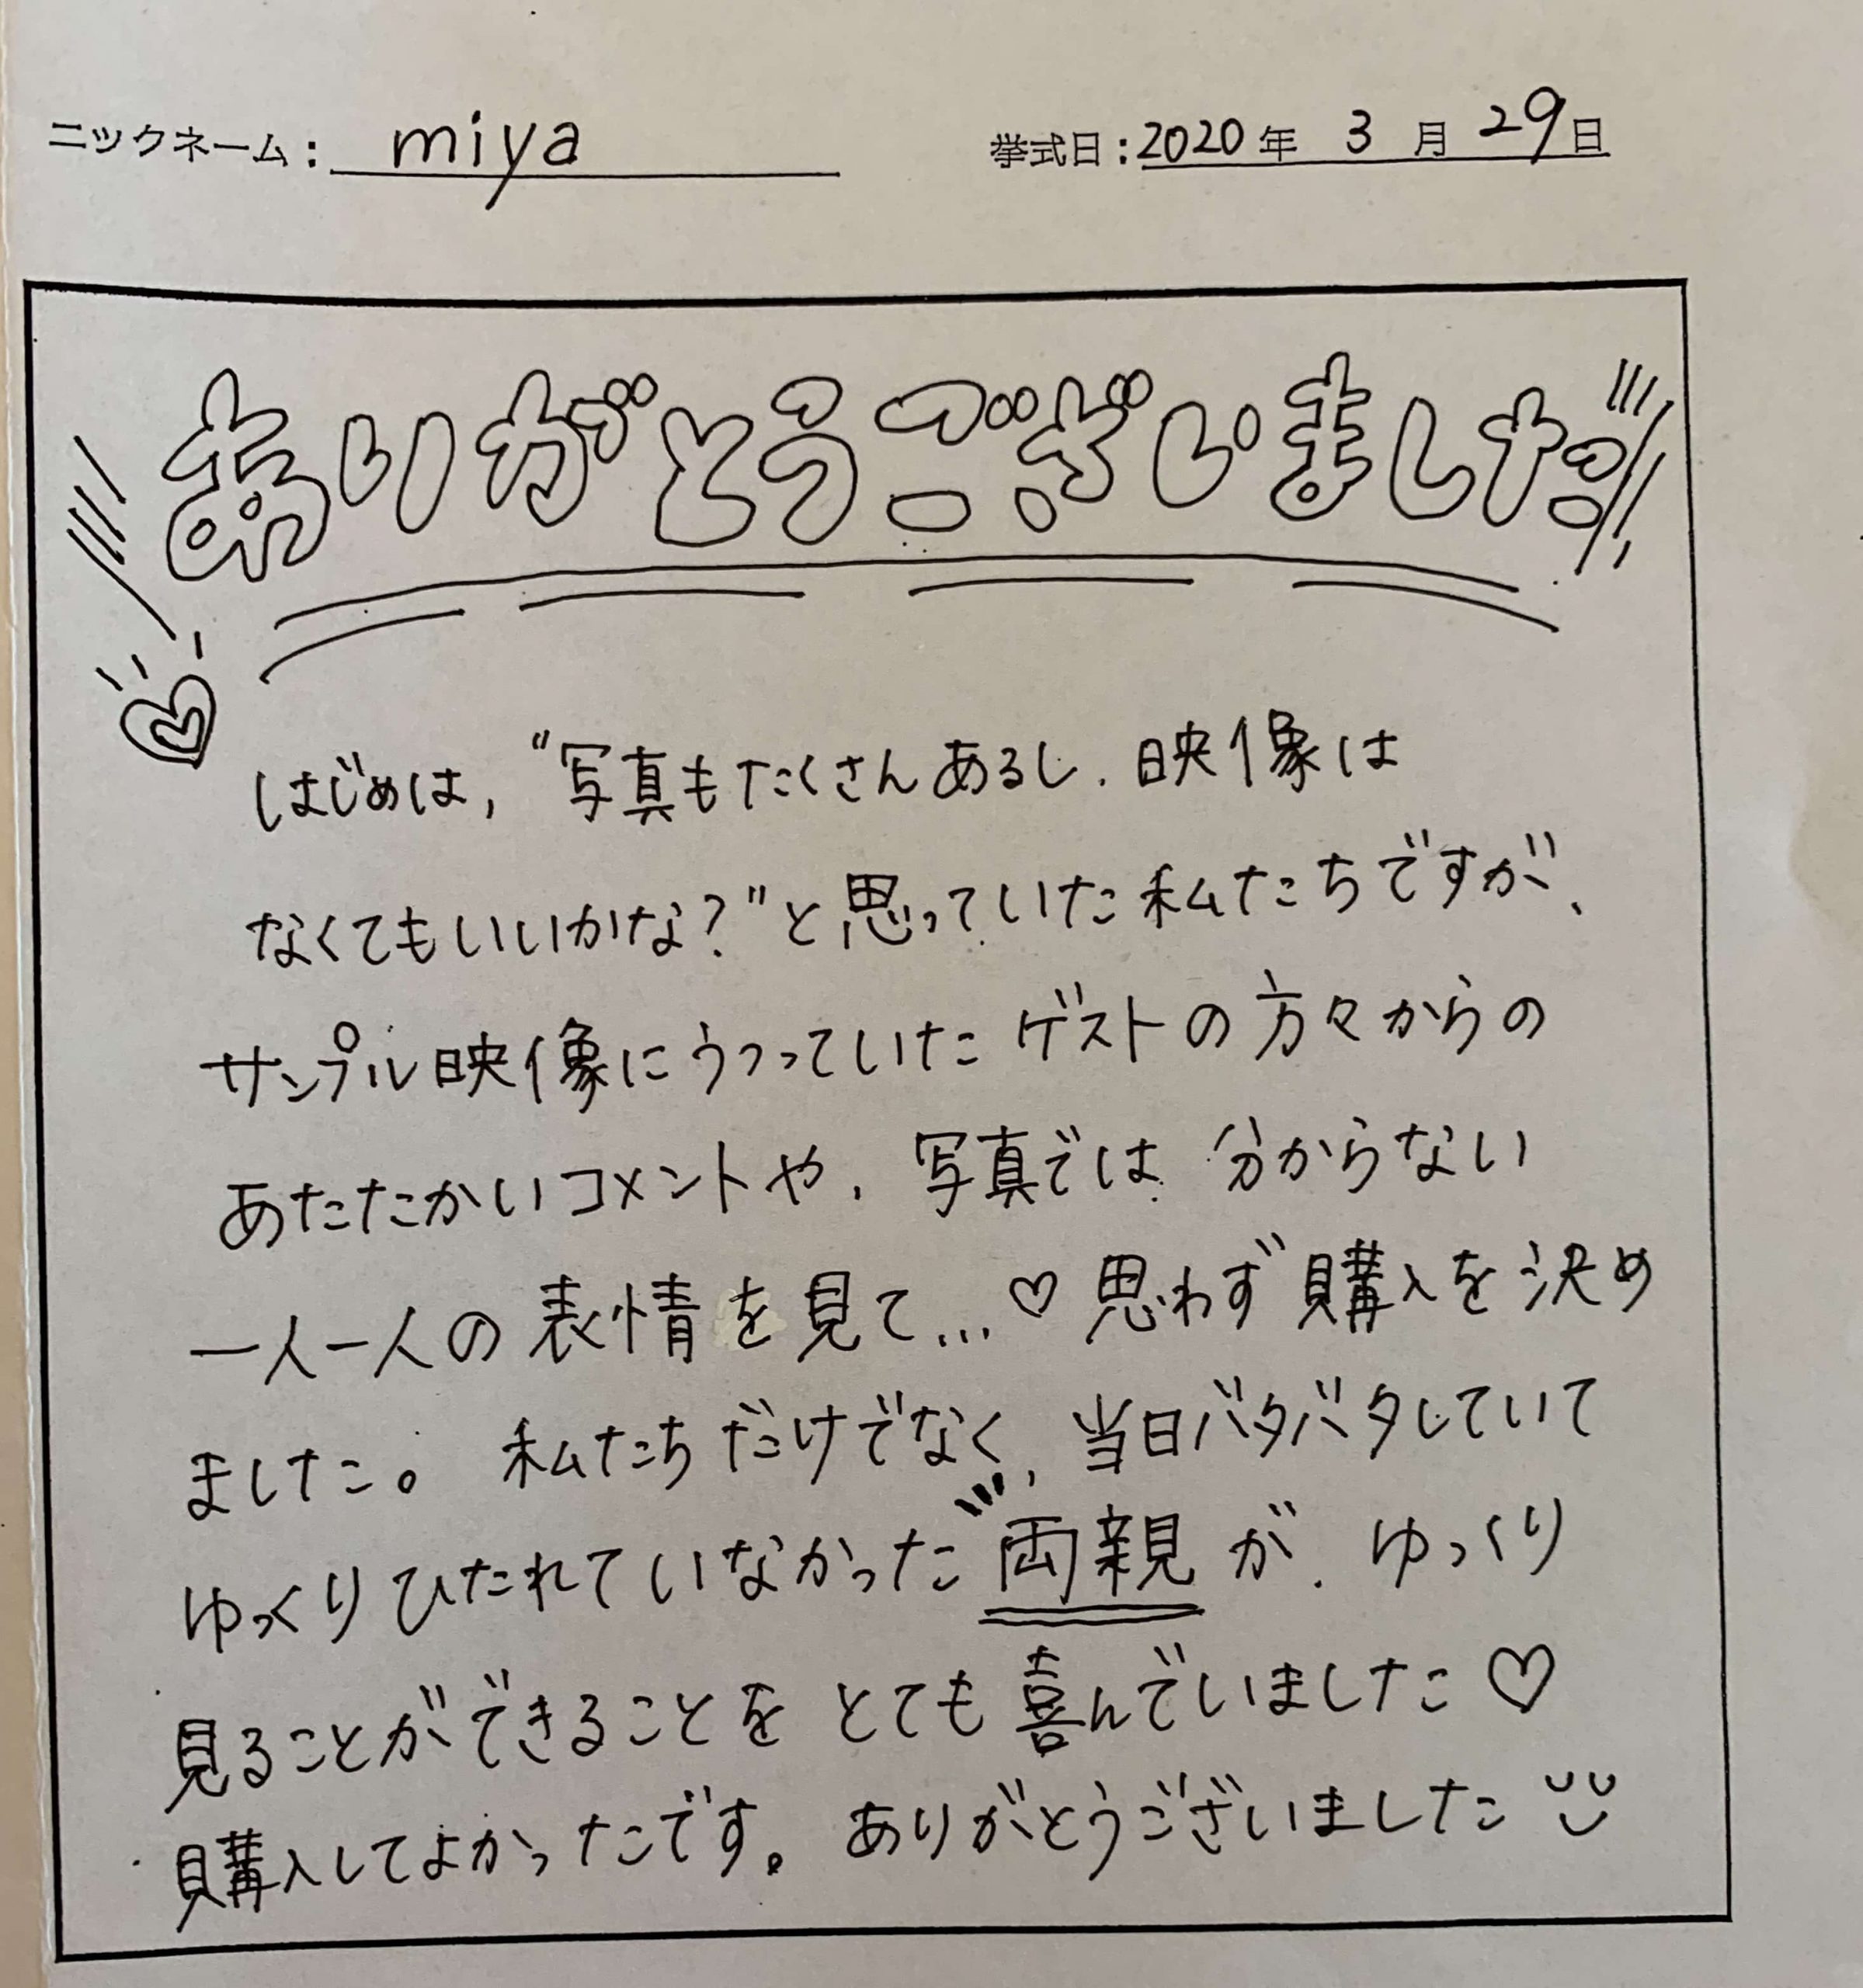 ニックネーム: miya 挙式日:2020年 3月 29日
ありがとうございました!!
はじめは,"写真もたくさんあるし、映像は
なくてもいいかな?"と思っていた私たちですが、
サンプル映像にうつっていたゲストの方々からの
あたたかいコメントや、写真では分からない
一人一人の表情を見て...♡思わず購入を決め
ました。私たちだけでなく、当日バタバタしていて
ゆっくりひたれていなかった両親が、ゆっくり
見ることができることをとても喜んでいました♡
購入してよかったです。ありがとうございました